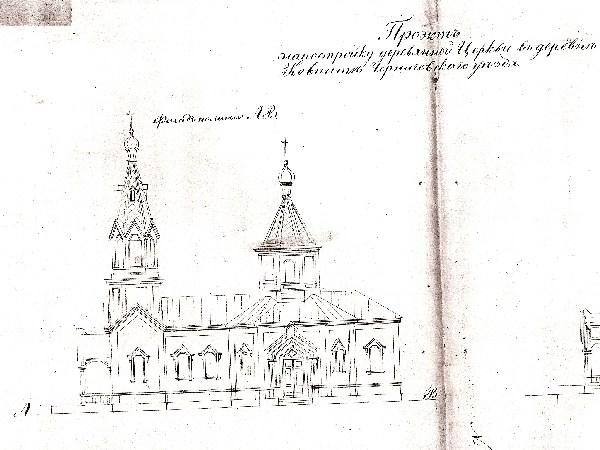 Проэктъ
на постройку деревянной Церкви въ деревнѣ
Черниговскаго уѣзда
Фасадъ по линіи А.В.
А
В